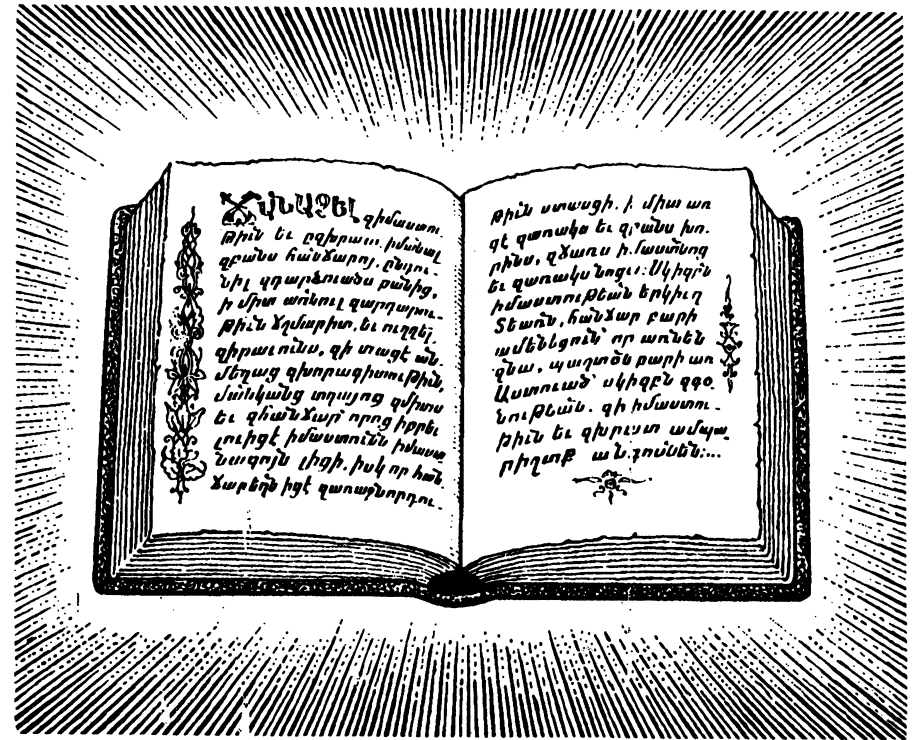 ՃԱՆԱՉԵԼ զիմաստու
թիւն եւ զխրատ, իմանալ
զբանս հանճարոյ, ընդու-
նիլ զդարձուածս բանից,
ի միտ առնուլ զարդարու-
թիւն ճշմարիտ, եւ ուղղել
զիրաւունս, զի տացէ ան-
մեղաց զխորագիտութիւն,
մանկանց տղայոց զմիտս
եւ զհանճար՝ որոց իբրեւ
լուիցէ իմաստունն իմաստ
նագոյն լիցի. իսկ որ հան
ճարեղն իցէ զառաջնորդու-
թիւն ստասցի. ի միտ առ
ցէ զառակս եւ զբանս խո-
րինս, զճառս իմաստնոց
եւ զառակս նոցա։ Սկիզբն
իմաստութեան երկիւղ
Տեառն, հանճար բարի
ամենեցուն՝ որ առնեն
զնա. պաշտօն բարի առ
Աստուած՝ սկիզբն զգօ
նութեան. զի իմաստու-
թիւն եւ զխրատ ամպա-
րիշտք անգոսնեն։...